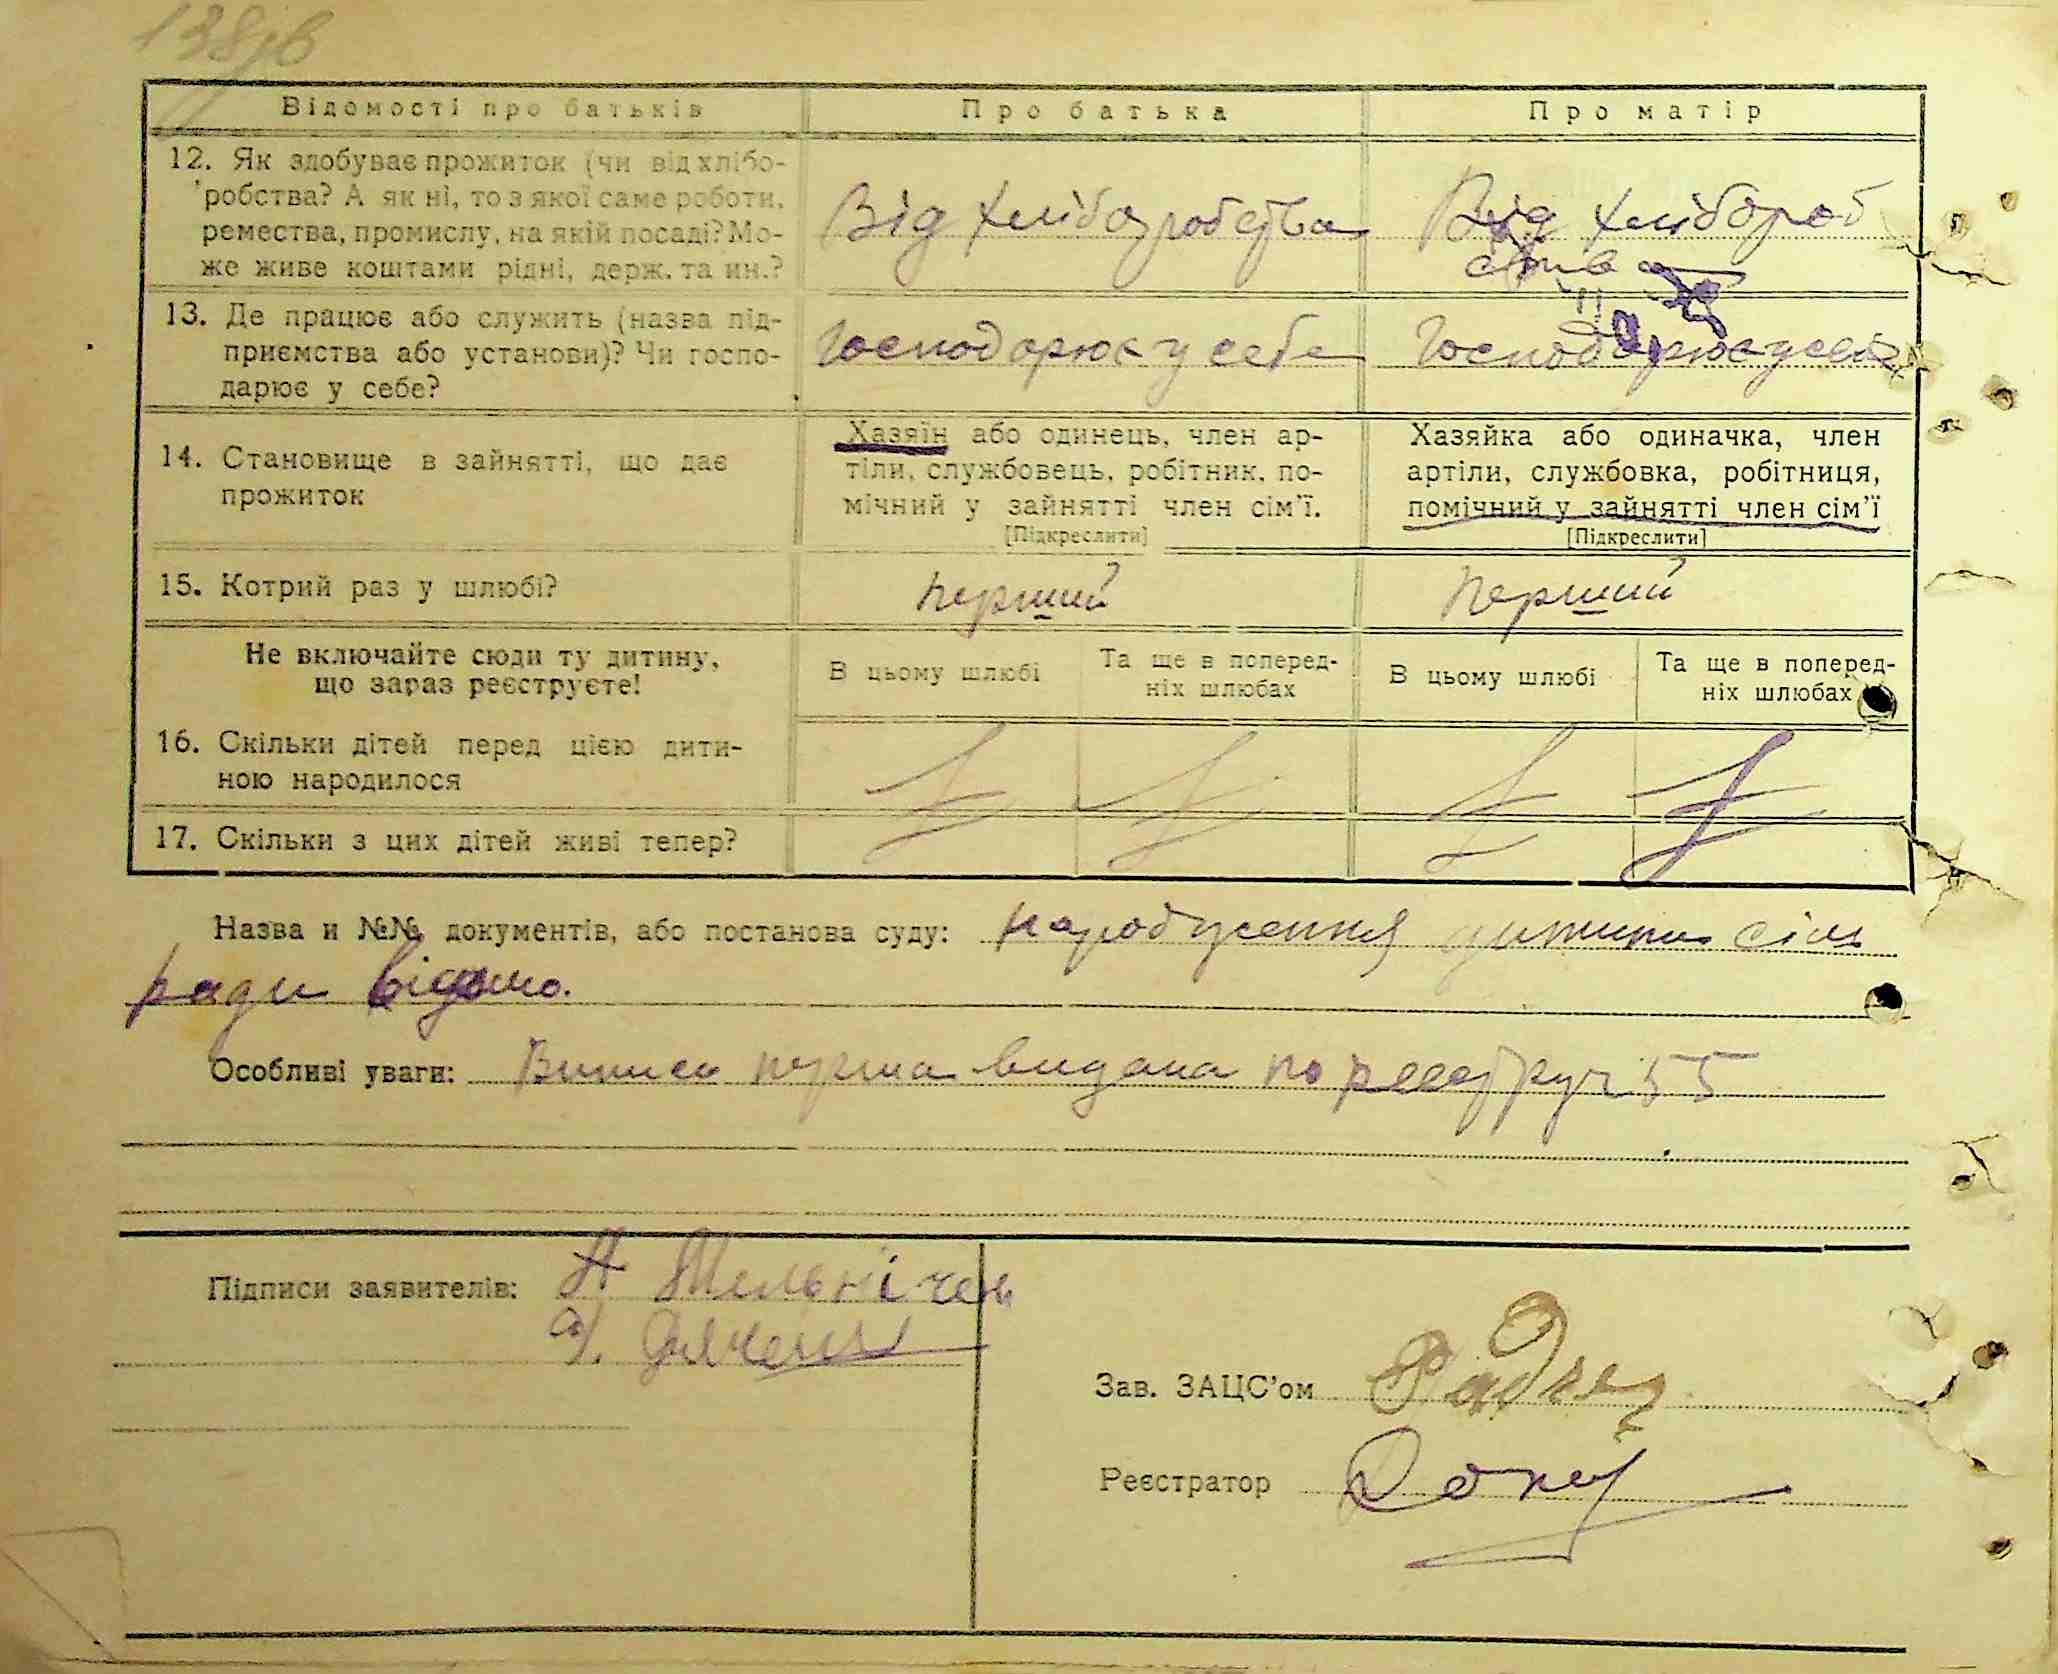 138зв
Відомості про батьків Про батька Про матір
12. Як здобуває прожиток (чи від хлібо-
робства? А як ні, то з якої саме роботи,
ремества, промислу, на якій посаді? Мо-
же живе коштами рідні, держ. та ин.?
Від хліборобства
Від хлібороб
ства
13. Де працює або служить (назва під-
приємства або установи)? Чи госпо-
дарює у себе?
Господорює у себе
Господорює у себе
14. Становище в зайнятті, що дає
прожиток
Хазяїн або одинець, член ар-
тіли, службовець, робітник, по-
мічний у зайнятті член сім'ї.
[Підкреслити]
Хазяйка або одиначка, член
артіли, службовка, робітниця,
помічний у зайнятті член сім'ї
[Підкреслити]
15. Котрий раз у шлюбі?
перший
перший
Не включайте сюди ту дитину,
що зараз реєструєте!
В цьому шлюбі
Та ще в поперед-
ніх шлюбах
В цьому шлюбі
Та ще в поперед-
ніх шлюбах
16. Скільки дітей перед цією дити-
ною народилося
17. Скільки з цих дітей живі тепер?
Назва и №№ документів, або постанова суду: народження дитини сіль
ради відомо.
Особливі уваги: Випись перша видана по реєстру 55
Підписи заявителів: А Мельнічен
Зав. ЗАЦС'ом
Реєстратор